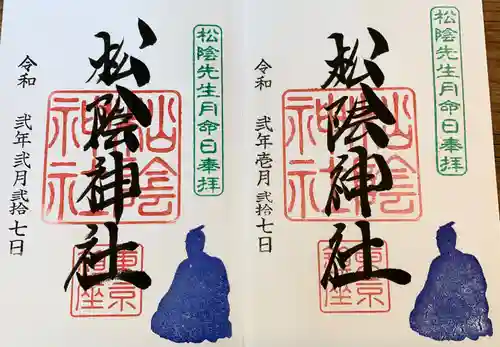 松陰先生月命日奉拝
松陰神社
令和 弐年弐月弐拾七日
松陰神社
東京
松陰先生月命日奉拝
松陰神社
令和 弐年壱月弐拾七日
松陰神社
東京